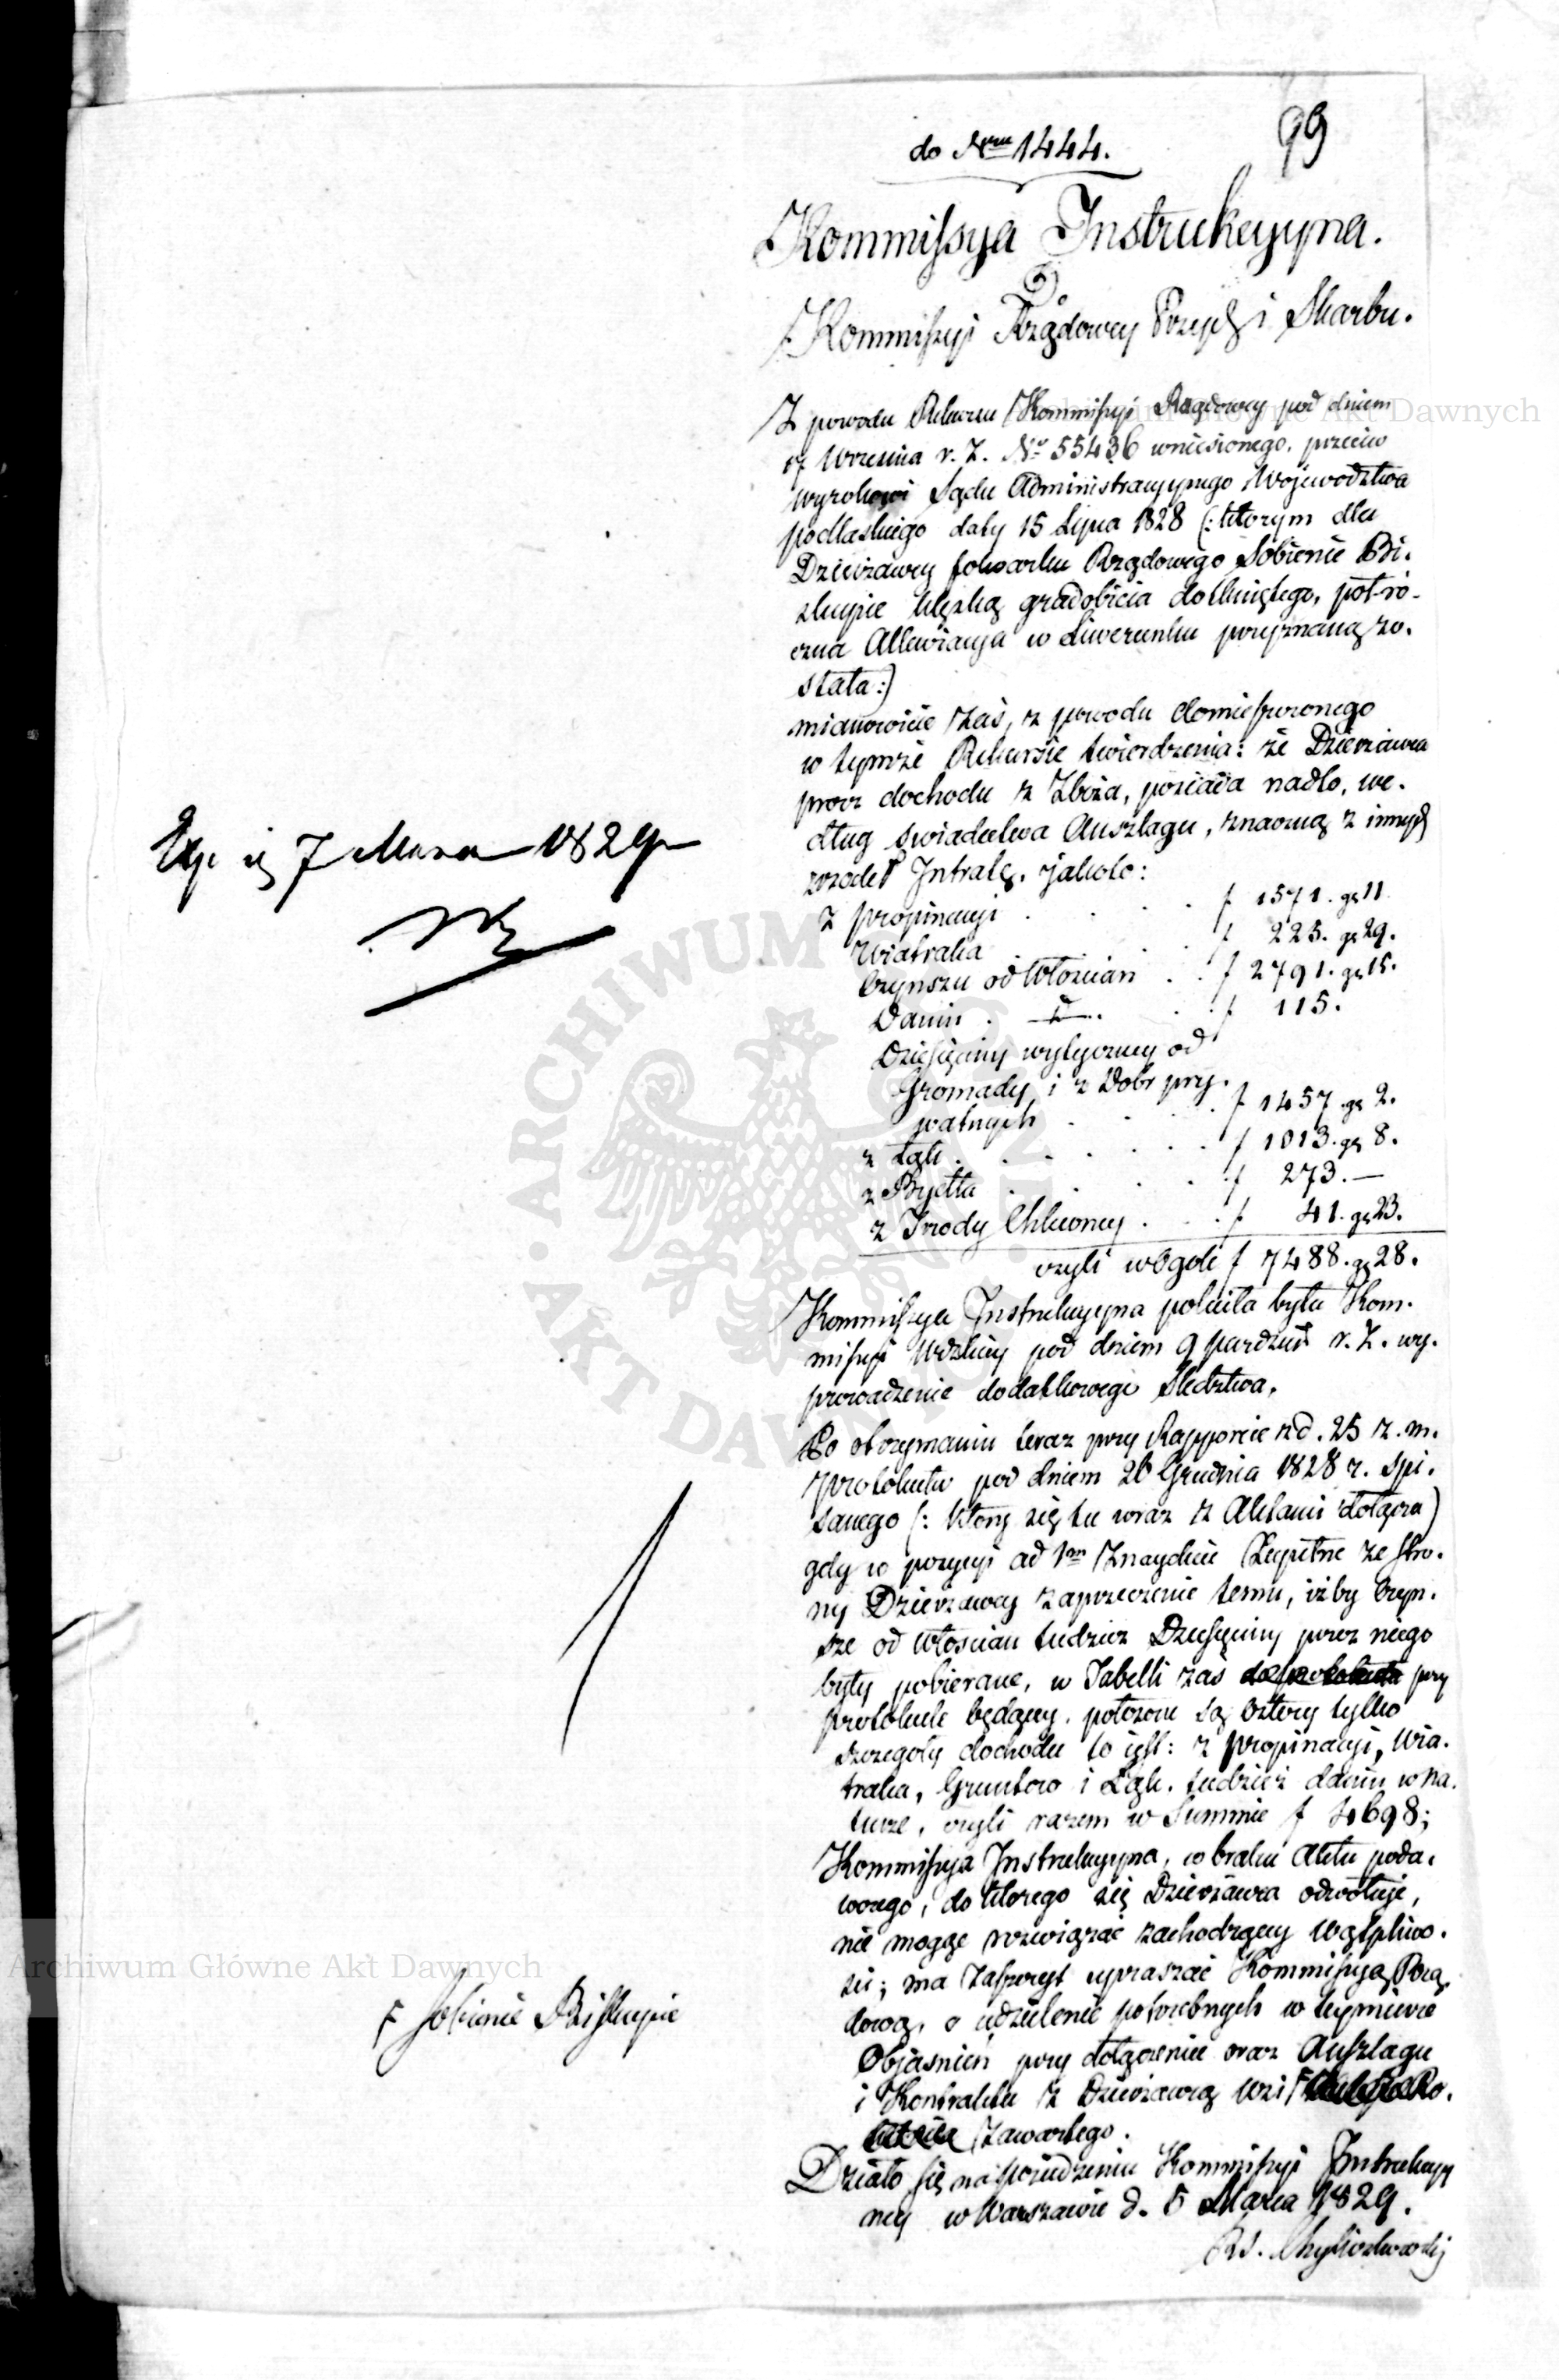 99
do Nru 1444.
Kommissya Instrukcyyna.
Do
Kommissyi Rządowey Przych i Skarbu.
Z powodu Rekursu Kommissyi Rządowey pod dniem
Września r. z. No 55436 wniesionego, przeciw
wyrokowi Sądu Administracyynego Województwa
podlaskiego daty 15 Lipca 1828 (: którym dla
Dzierżawcy folwarku Rządowego Sobienie Bi-
skupie klęską gradobicia dotkniętego, pół-ro-
czna Allewiacya w Liwerunku przyznaną zo-
stała :)
mianowicie zaś, z powodu domieszczonego
w tymże Rekursie twierdzenia: że Dzierżawca
procz dochodu z Zboża, posiada nadto, we-
dług świadectwa Anszlagu, znaczną z innych
zrodeł Intratę, jakoto:
z propinacyi . . . . f 1571. gr 11.
Wiatraka . . f 225. gr 29.
Czynszu od Włościan . . f 2791. gr 15.
Danin . d . . f 115.
Dziesięciny wytyczney od
Gromady i z Dobr pry-
watnych . . . f 1457. gr 2.
z Łąk . . . . . f 1013. gr 8.
z Bydła . . . . f 273. —
z Trzody Chlewney . . . f 41. gr 23.
czyli wogole f 7488. gr 28.
Kommissya Instrukcyyna poleciła była Kom-
missyi Wdzkiey pod dniem 9 Paździer r. z. wy-
prowadzenie dodatkowego śledztwa.
Po otrzymaniu teraz przy Rapporcie z d. 25 z. m.
protokułu pod dniem 26 Grudnia 1828 r. spi-
sanego (: który się tu wraz z Aktami dołącza)
gdy w pozycyi ad 1m znayduie Zupełne ze stro-
ny Dzierżawcy zaprzeczenie temu, iżby czyn-
sze od Włościan tudzież Dziesięciny przez niego
były pobierane, w Tabelli zaś przy
protokule będącey, położone są cztery tylko
szczegóły dochodu to iest: z propinacyi, Wia-
traka, Gruntow i Łąk, tudzież danin w na-
turze, czyli razem w Summie f 4698;
Kommissya Instrukcyyna, w braku Aktu poda-
wczego, do którego się Dzierżawca odwołuje,
nie mogąc rozwiązać zachodzącey wątpliwo-
ści; ma zaszczyt upraszać Kommissyą Rzą-
dową, o udzielenie potrzebnych w tey mierze
Objaśnień przy dołączeniu oraz Anszlagu
i Kontraktu z Dzierżawcą wsi
zawartego.
Działo się na posiedzeniu Kommissyi Instrukcyy
ney w Warszawie d. 5 Marca 1829.
Exp. 7 Marca 1829
F Sobienie Biskupie
Archiwum Główne Akt Dawnych
Archiwum Główne Akt Dawnych